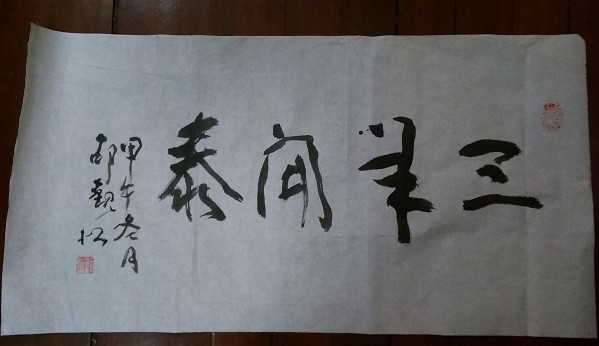 三羊開泰
甲午冬月
胡觀松